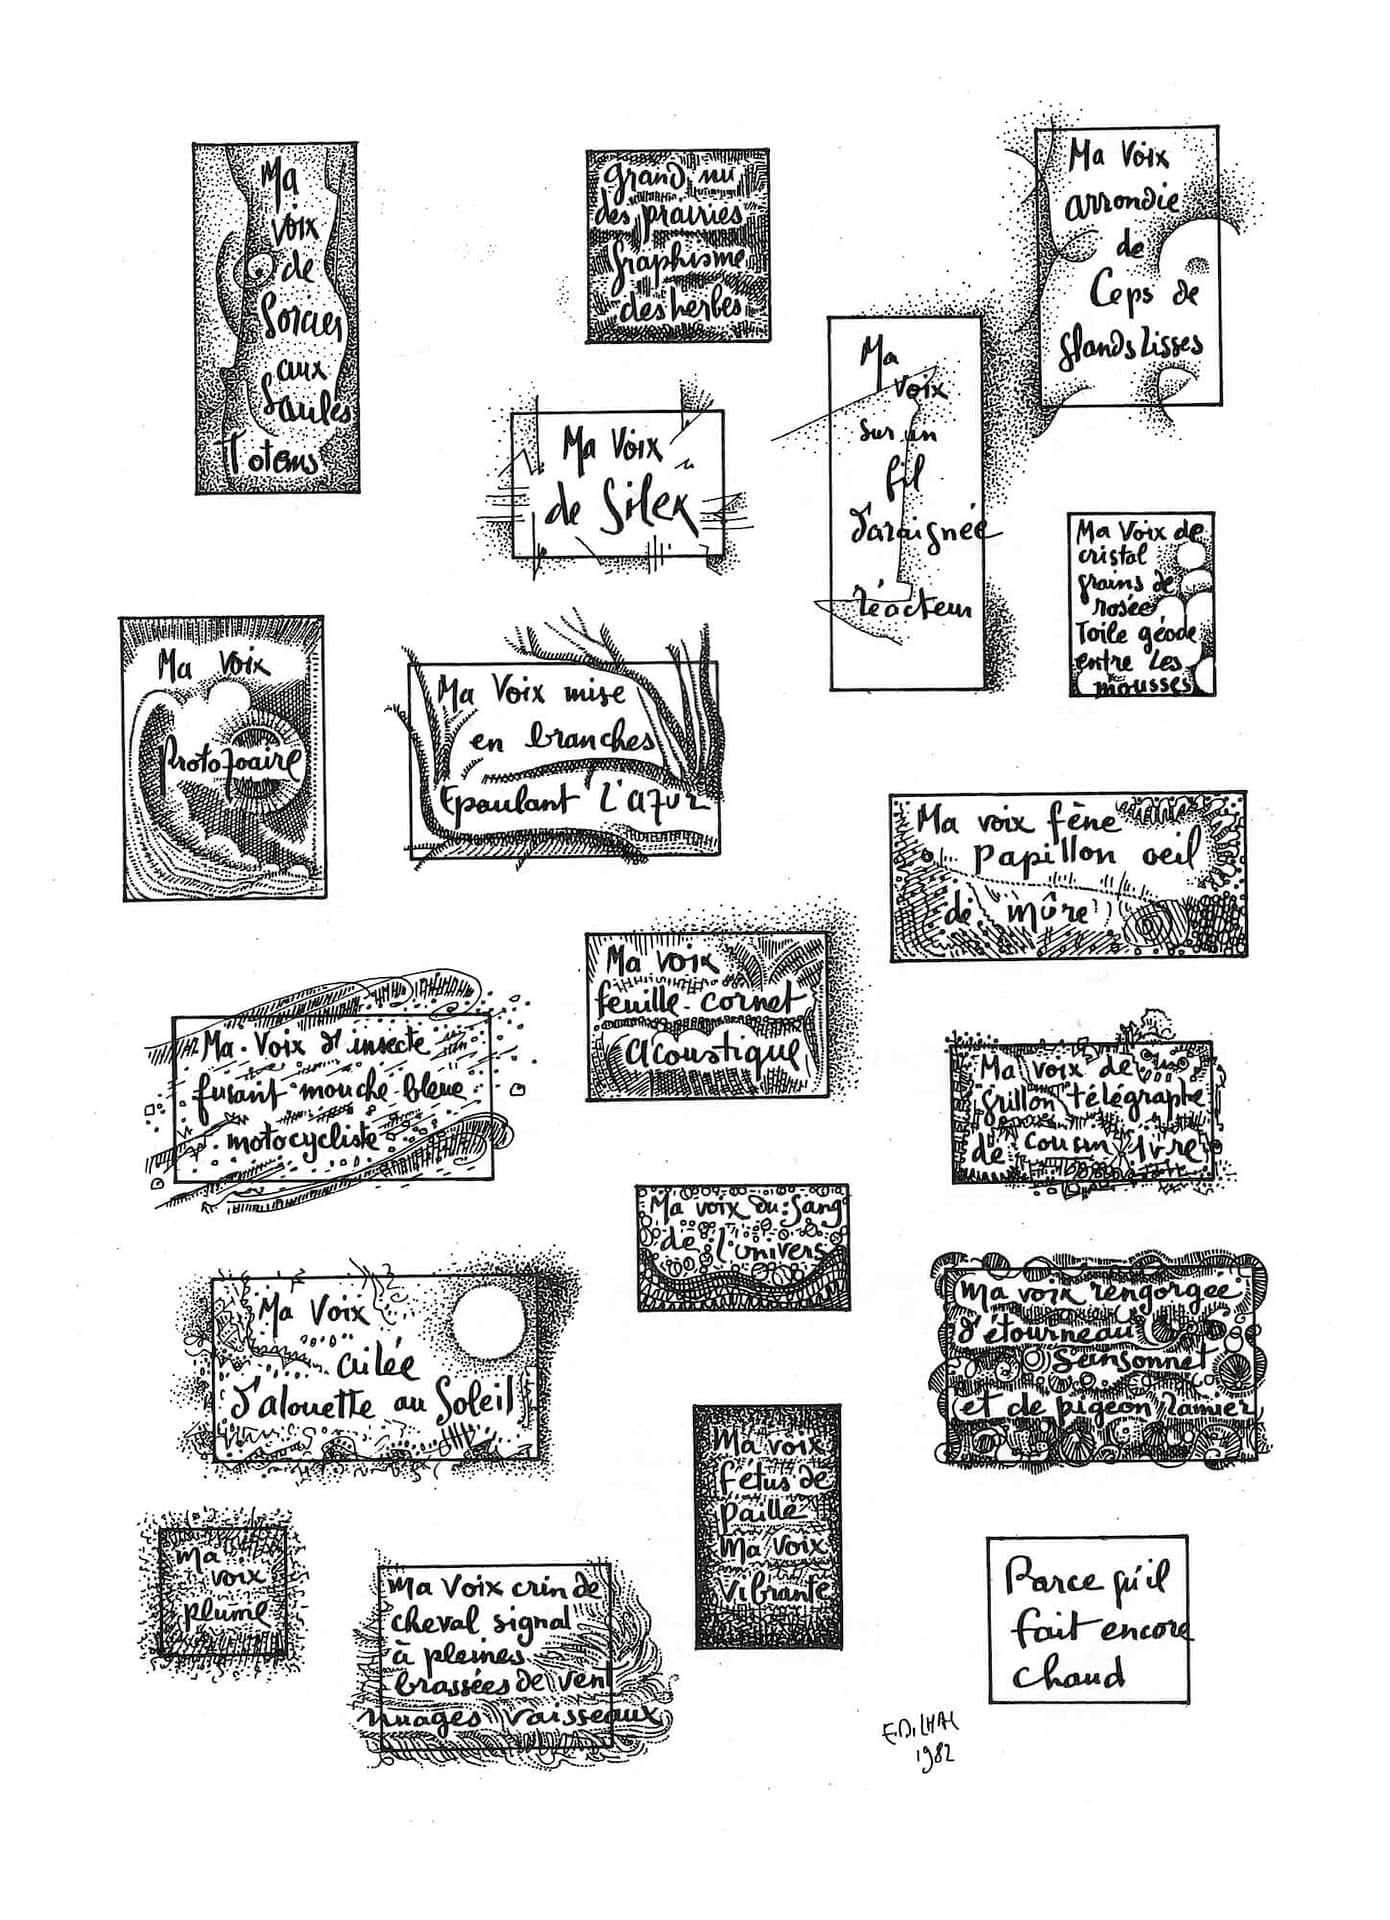 Ma
Voix
de
Sorcier
aux
Saules
Totems
Grand nu
des prairies
Graphisme
des herbes
Ma Voix
arrondie
de
Ceps de
Glands lisses
Ma
voix
sur un
fil
d'araignée
réacteur
Ma Voix
de Silex
Ma Voix de
cristal
grains de
rosée
Toile géode
entre Les
mousses
Ma Voix
Protozoaire
Ma Voix mise
en branches
Epaulant l'azur
Ma voix fène
papillon oeil
de mûre
Ma voix
feuille-cornet
acoustique
Ma Voix d'insecte
fusant mouche bleue
motocycliste
Ma voix de
grillon télégraphe
de cousin ivre
Ma voix du Sang
de l'univers
Ma Voix
ailée
d'alouette au Soleil
Ma voix rengorgee
d'étourneau
Sansonnet
et de pigeon ramier
Ma voix
fétus de
paille
Ma Voix
Vibrante
Ma
voix
plume
Ma Voix crin de
cheval signal
à pleines
brassées de vent
nuages vaisseaux
Parce qu'il
fait encore
chaud
E.DILHAC
1982